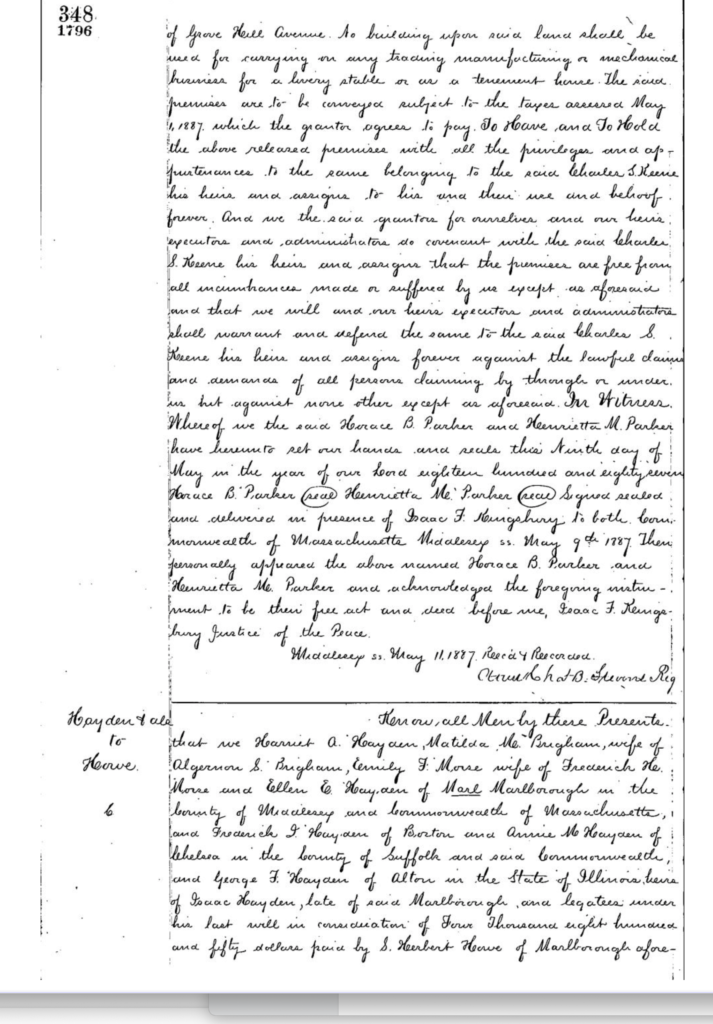 348
1796
of Grove Hill Avenue. No building upon said land shall be
used for carrying on any trading manufacturing or mechanical
business for a livery stable or as a tenement house. The said
premises are to be conveyed subject to the taxes assessed May
1, 1887. which the grantor agrees to pay. To Have and To Hold
the above released premises with all the privileges and ap-
purtenances to the same belonging to the said Charles S. Keene
his heirs and assigns to his and their use and behoof
forever. And we the said grantors for ourselves and our heirs
executors and administrators do covenant with the said Charles
S. Keene his heirs and assigns that the premises are free from
all incumbrances made or suffered by us except as aforesaid
and that we will and our heirs executors and administrators
shall warrant and defend the same to the said Charles S.
Keene his heirs and assigns forever against the lawful claims
and demands of all persons claiming by through or under
us but against none other except as aforesaid. In Witness
Whereof we the said Horace B. Parker and Henrietta M. Parker
have hereunto set our hands and seals this Ninth day of
May in the year of our Lord eighteen hundred and eighty seven
Horace B. Parker (seal) Henrietta M. Parker (seal) Signed sealed
and delivered in presence of Isaac F. Kingsbury to both. Com-
monwealth of Massachusetts Middlesex ss. May 9th 1887. Then
personally appeared the above named Horace B. Parker and
Henrietta M. Parker and acknowledged the foregoing instru-
ment to be their free act and deed before me, Isaac F. Kings-
bury Justice of the Peace.
Middlesex ss. May 11, 1887. Rec'd & Recorded.
Chas. B. Stevens Reg
Hayden & als
to
Howe.
6
Know all Men by these Presents.
that we Harriet A. Hayden, Matilda M. Brigham, wife of
Algernon S. Brigham, Emily F. Morse wife of Frederick H.
Morse and Ellen E. Hayden of Marl Marlborough in the
County of Middlesex and Commonwealth of Massachusetts,
and Frederick I. Hayden of Boston and Annie M Hayden of
Chelsea in the County of Suffolk and said Commonwealth,
and George F. Hayden of Alton in the State of Illinois, heirs
of Isaac Hayden, late of said Marlborough and legatees under
his last will in consideration of Four Thousand eight hundred
and fifty dollars paid by S. Herbert Howe of Marlborough afore-